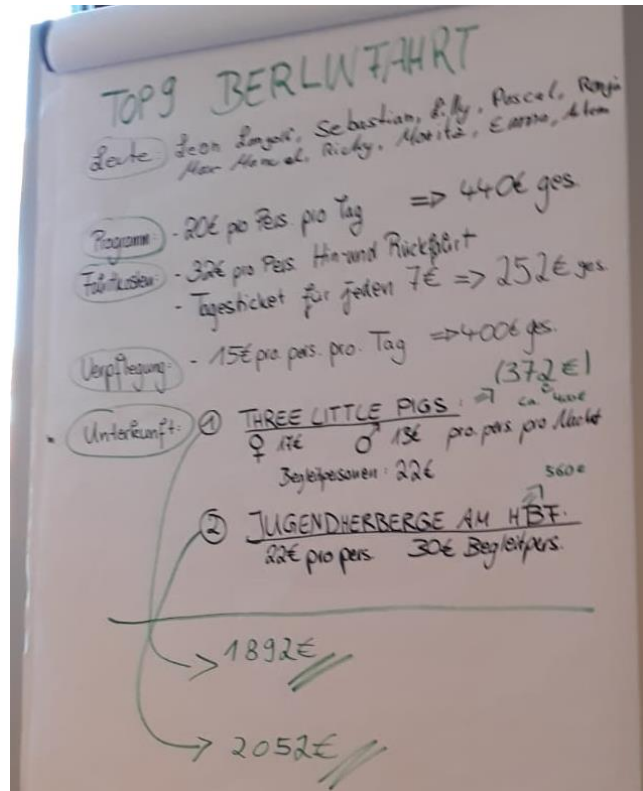 TOP 9 BERLINFAHRT
Leute: Leon, Sebastian, Lilly, Pascal, Ronja
Max Manuel, Richy, Marita, Emma,
Programm: - 20€ pro Pers. pro Tag => 440€ ges.
Fahrtkosten: - 32€ pro Pers. Hin- und Rückfahrt
- Tagesticket für jeden 7€ => 252€ ges.
Verpflegung: - 15€ pro. pers. pro. Tag => 400€ ges.
(372€)
ca. 400€
Unterkunft: ① THREE LITTLE PIGS:
♀ 17€ ♂ 13€ pro. pers pro Nacht
Begleitpersonen: 22€
560€
② JUGENDHERBERGE AM HBF.
22€ pro pers. 30€ Begleitpers.
1892€
2052€